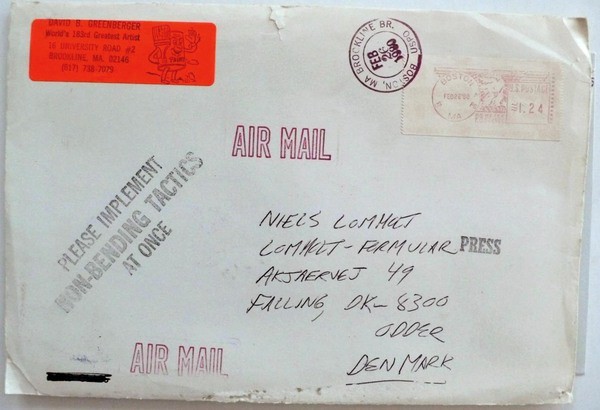 DAVID B. GREENBERGER
World's 183rd Greatest Artist
16 UNIVERSITY ROAD #2
BROOKLINE, MA. 02146
(617) 738-7079
BOSTON, MA BROOKLINE BR. USPO
FEB
1980
BOSTON
FEB
U.S. POSTAGE
1.24
AIR MAIL
PLEASE IMPLEMENT
NON-BENDING TACTICS
AT ONCE
NIELS LOMHOLT
LOMHOLT-FORMULAR PRESS
AKJAERVEJ 49
FALLING, DK-8300
ODDER
DENMARK
AIR MAIL